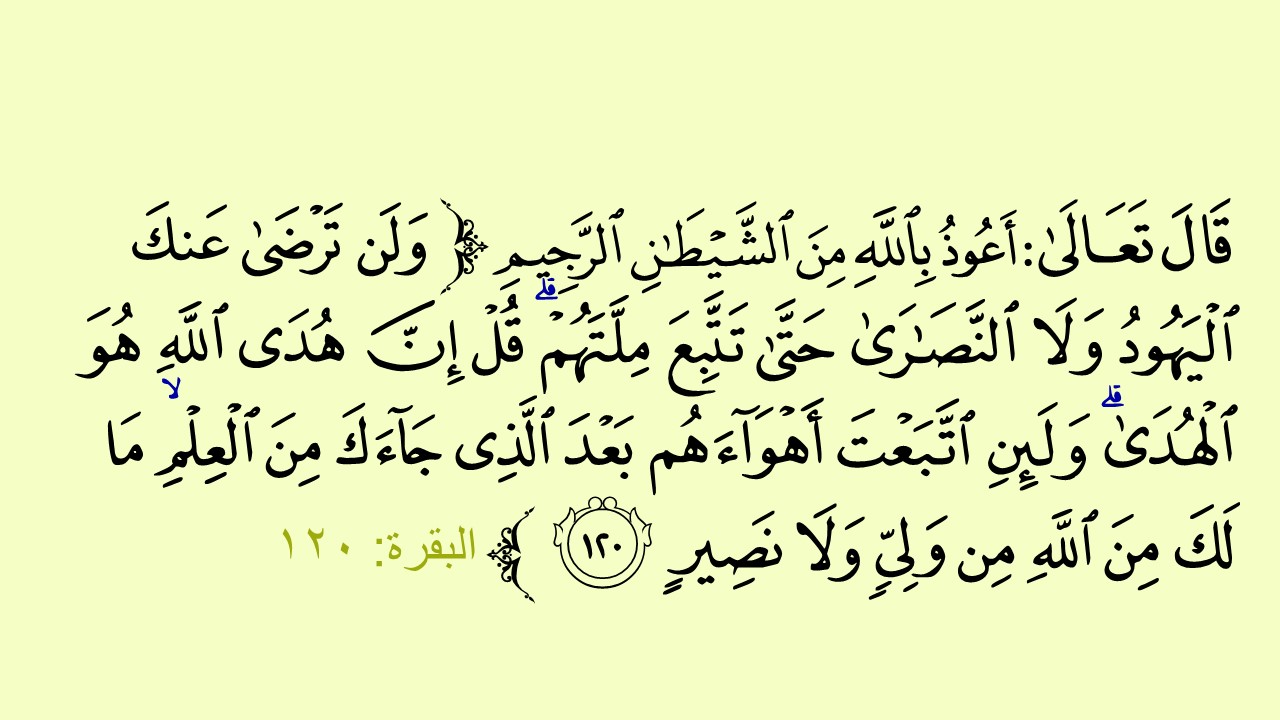 قَالَ تَعَـالَىٰ: أَعُوذُ بِٱللَّهِ مِنَ ٱلشَّيۡطَٰنِ ٱلرَّجِيمِ ﴿ وَلَن تَرۡضَىٰ عَنكَ
ٱلۡيَهُودُ وَلَا ٱلنَّصَٰرَىٰ حَتَّىٰ تَتَّبِعَ مِلَّتَهُمۡۗ قُلۡ إِنَّ هُدَى ٱللَّهِ هُوَ
ٱلۡهُدَىٰۗ وَلَئِنِ ٱتَّبَعۡتَ أَهۡوَآءَهُم بَعۡدَ ٱلَّذِى جَآءَكَ مِنَ ٱلۡعِلۡمِۙ مَا
لَكَ مِنَ ٱللَّهِ مِن وَلِىّٖ وَلَا نَصِيرٍ ١٢٠ ﴾ البقرة: ١٢٠